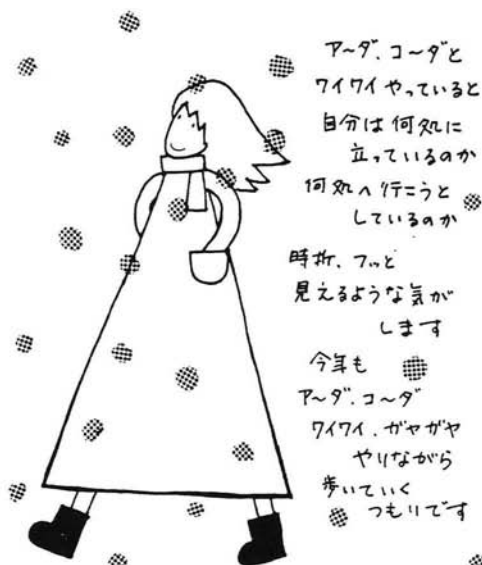 ア〜ダ、コ〜ダと
ワイワイやっていると
自分は何処に
立っているのか
何処へ行こうと
しているのか
時折、フッと
見えるような気が
します
今年も
ア〜ダ、コ〜ダ
ワイワイ、ガヤガヤ
やりながら
歩いていく
つもりです